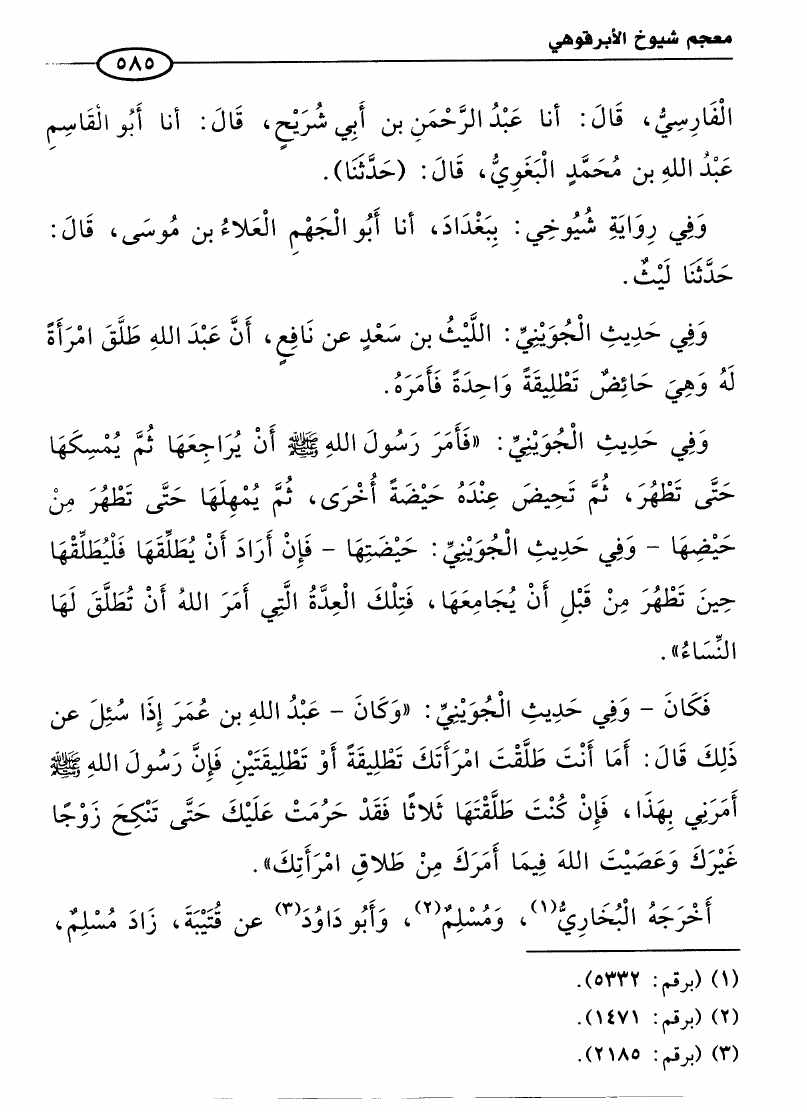 معجم شيوخ الأبرقوهي
٥٨٥
الْفَارِسِيُّ، قَالَ: أنا عَبْدُ الرَّحْمَنِ بن أَبِي شُرَيْحٍ، قَالَ: أنا أَبُو الْقَاسِمِ
عَبْدُ اللهِ بن مُحَمَّدٍ الْبَغَوِيُّ، قَالَ: (حَدَّثَنَا).
وَفِي رِوَايَةِ شُيُوخِي: بِبَغْدَادَ، أنا أَبُو الْجَهْمِ الْعَلاءُ بن مُوسَى، قَالَ:
حَدَّثَنَا لَيْثٌ.
وَفِي حَدِيثِ الْجُوَيْنِيِّ: اللَّيْثُ بن سَعْدٍ عن نَافِعٍ، أَنَّ عَبْدَ اللهِ طَلَّقَ امْرَأَةً
لَهُ وَهِيَ حَائِضٌ تَطْلِيقَةً وَاحِدَةً فَأَمَرَهُ.
وَفِي حَدِيثِ الْجُوَيْنِيِّ: «فَأَمَرَ رَسُولَ اللهِ ﷺ أَنْ يُرَاجِعَهَا ثُمَّ يُمْسِكَهَا
حَتَّى تَطْهُرَ، ثُمَّ تَحِيضَ عِنْدَهُ حَيْضَةً أُخْرَى، ثُمَّ يُمْهِلَهَا حَتَّى تَطْهُرَ مِنْ
حَيْضِهَا - وَفِي حَدِيثِ الْجُوَيْنِيِّ: حَيْضَتِهَا - فَإِنْ أَرَادَ أَنْ يُطَلِّقَهَا فَلْيُطَلِّقْهَا
حِينَ تَطْهُرَ مِنْ قَبْلِ أَنْ يُجَامِعَهَا، فَتِلْكَ الْعِدَّةُ الَّتِي أَمَرَ اللهُ أَنْ تُطَلَّقَ لَهَا
النِّسَاءُ».
فَكَانَ - وَفِي حَدِيثِ الْجُوَيْنِيِّ: «وَكَانَ - عَبْدُ اللهِ بن عُمَرَ إِذَا سُئِلَ عن
ذَلِكَ قَالَ: أَمَا أَنْتَ طَلَّقْتَ امْرَأَتَكَ تَطْلِيقَةً أَوْ تَطْلِيقَتَيْنِ فَإِنَّ رَسُولَ اللهِ ﷺ
أَمَرَنِي بِهَذَا، فَإِنْ كُنْتَ طَلَّقْتَهَا ثَلاثًا فَقَدْ حَرُمَتْ عَلَيْكَ حَتَّى تَنْكِحَ زَوْجًا
غَيْرَكَ وَعَصَيْتَ اللهَ فِيمَا أَمَرَكَ مِنْ طَلاقِ امْرَأَتِكَ».
أَخْرَجَهُ الْبُخَارِيُّ(١)، وَمُسْلِمٌ(٢)، وَأَبُو دَاوُدَ(٣) عن قُتَيْبَةَ، زَادَ مُسْلِمٌ،
(١) (برقم: ٥٣٣٢).
(٢) (برقم: ١٤٧١).
(٣) (برقم: ٢١٨٥).